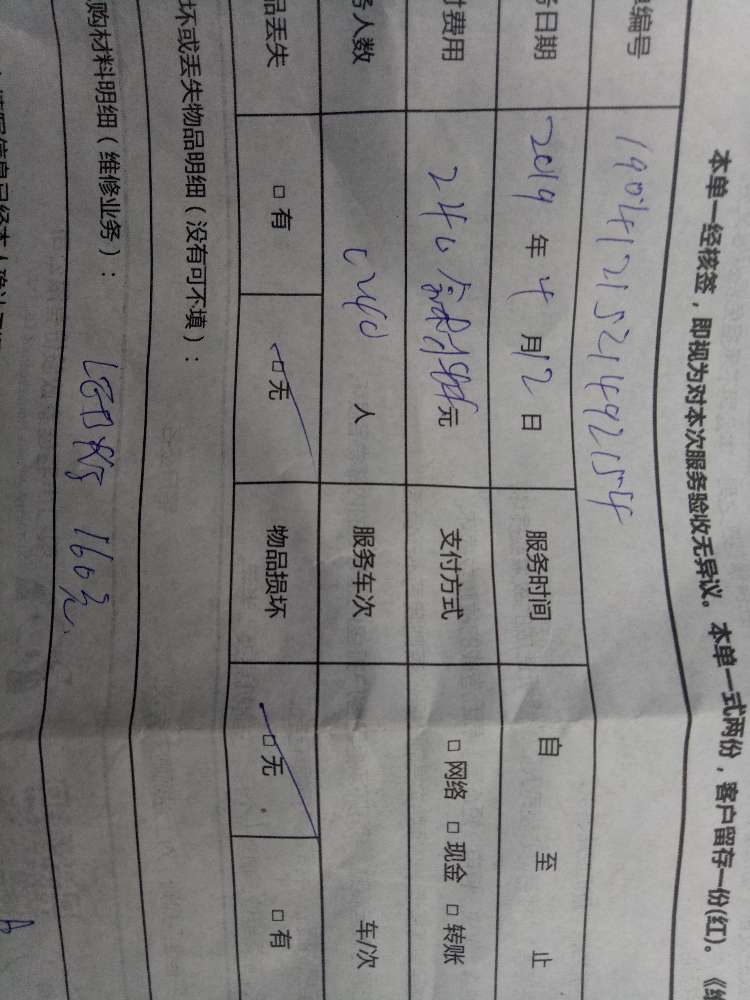 本单一经核签，即视为对本次服务验收无异议。本单一式两份，客户留存一份(红)。
编号 190412152149254
日期 2019 年 4 月 12 日 服务时间 自 至 止
费用 240 元 支付方式 □ 网络 □ 现金 □ 转账
人数 人 服务车次 车/次
品丢失 □ 有 □ 无 物品损坏 □ 无 □ 有
坏或丢失物品明细（没有可不填）：
购材料明细（维修业务）： LED灯 160元.